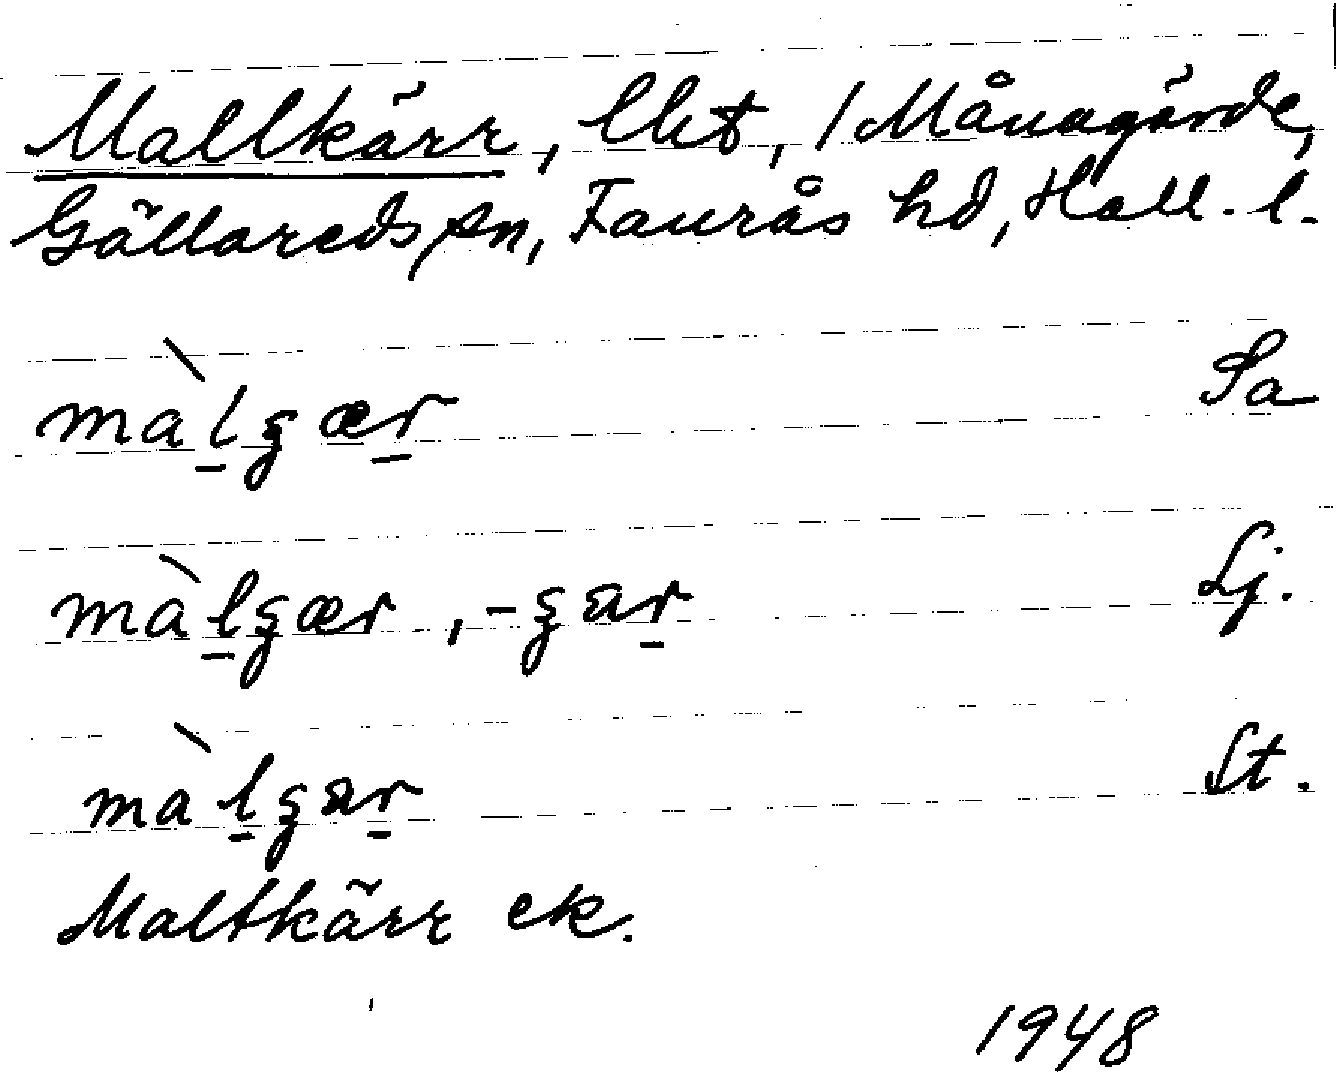 Mallkärr, lht, /Månagärde,
Gällareds sn, Faurås hd, Hall. l.
màlʒær Sa
màlʒær, -ʒar Lj.
màlʒar St.
Maltkärr ek.
1948